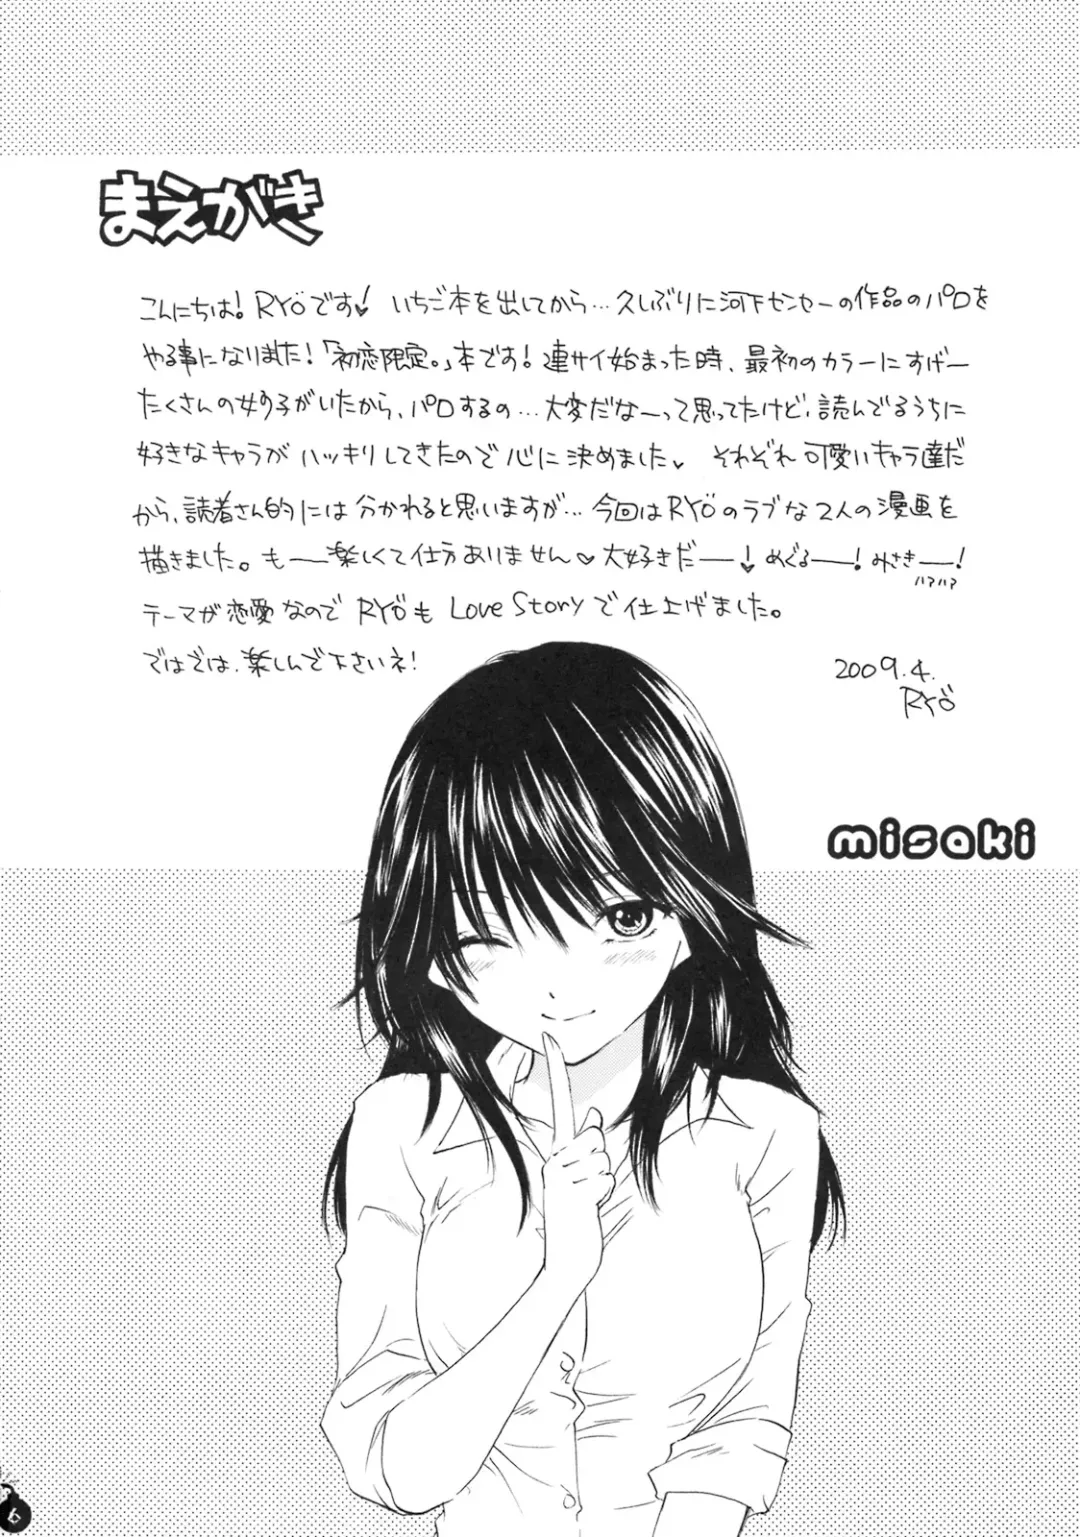 まえがき
こんにちは!RYÖです! いちご本を出してから…久しぶりに河下センセーの作品のパロを
やる事になりました!「初恋限定。」本です!連サイ始まった時、最初のカラーにすげー
たくさんの女の子がいたから、パロするの…大変だなーって思ってたけど、読んでるうちに
好きなキャラがハッキリしてきたので心に決めました♥ それぞれ可愛いキャラ達だ
から、読者さん的には分かれると思いますが…今回はRYÖのラブな2人の漫画を
描きました。もー楽しくて仕方ありません♥大好きだー!めぐるー!みさきー!
ハァハァ
テーマが恋愛なのでRYÖもLove Storyで仕上げました。
ではでは、楽しんで下さいネ!
2009.4.
RYÖ
misaki
6